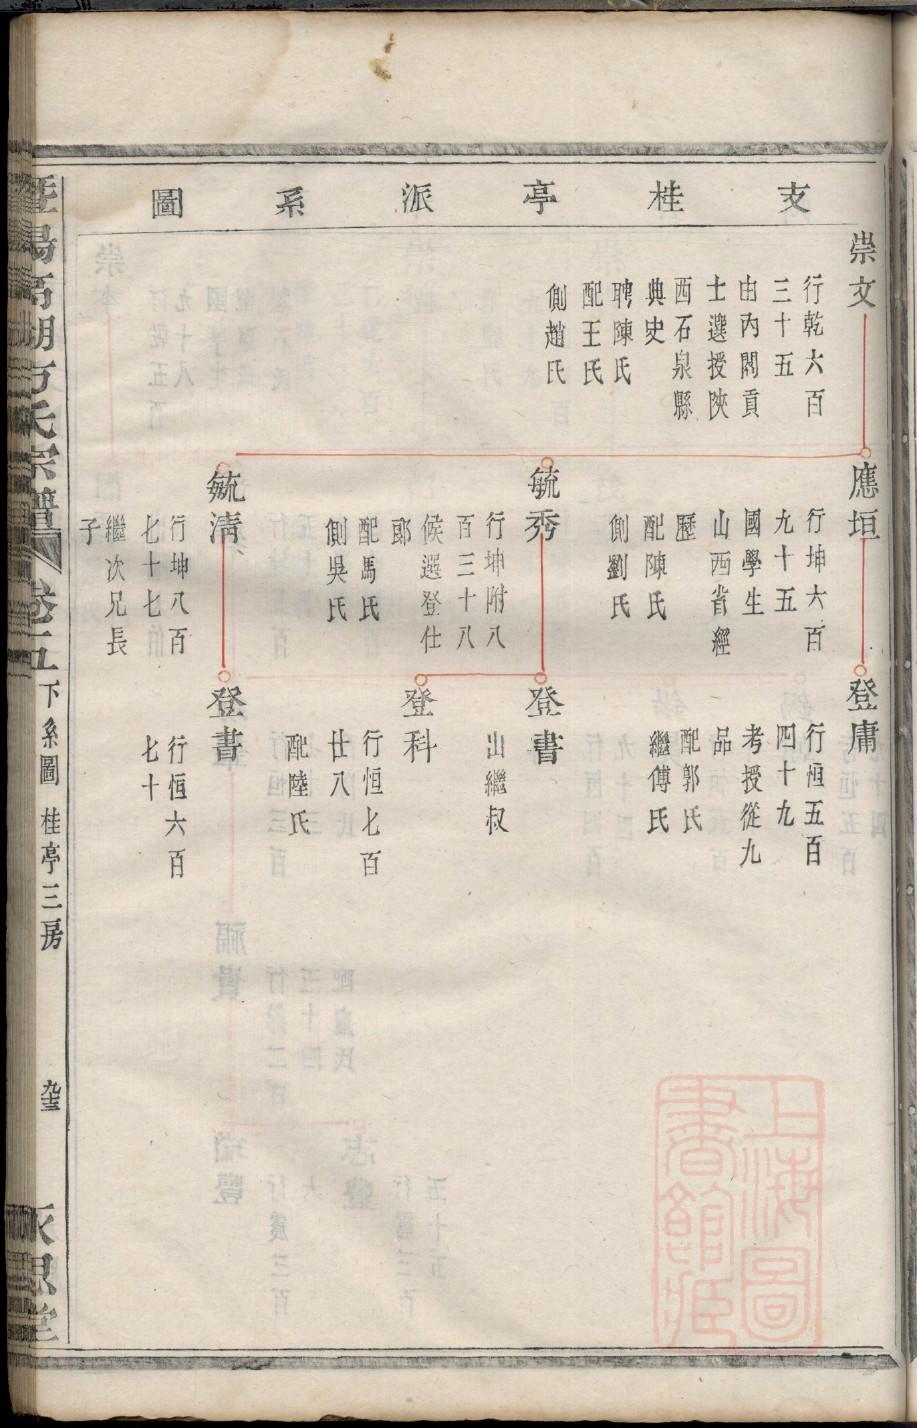 支桂亭派系圖
崇文
行乾六百
三十五
由內閣貢
士選授陝
西石泉縣
典史
聘陳氏
配王氏
側趙氏
應垣
行坤六百
九十五
國學生
山西省經
歷
配陳氏
側劉氏
毓秀
行坤附八
百三十八
候選登仕
郎
配馬氏
側吳氏
毓清
行坤八百
七十七
繼次兄長
子
登庸
行恒五百
四十九
考授從九
品
配郭氏
繼傅氏
登書
出繼叔
登科
行恒七百
廿八
配陸氏
登書
行恒六百
七十
暨陽髙湖方氏宗譜
卷十五
下系圖 桂亭三房
永思堂
上海圖
書館藏